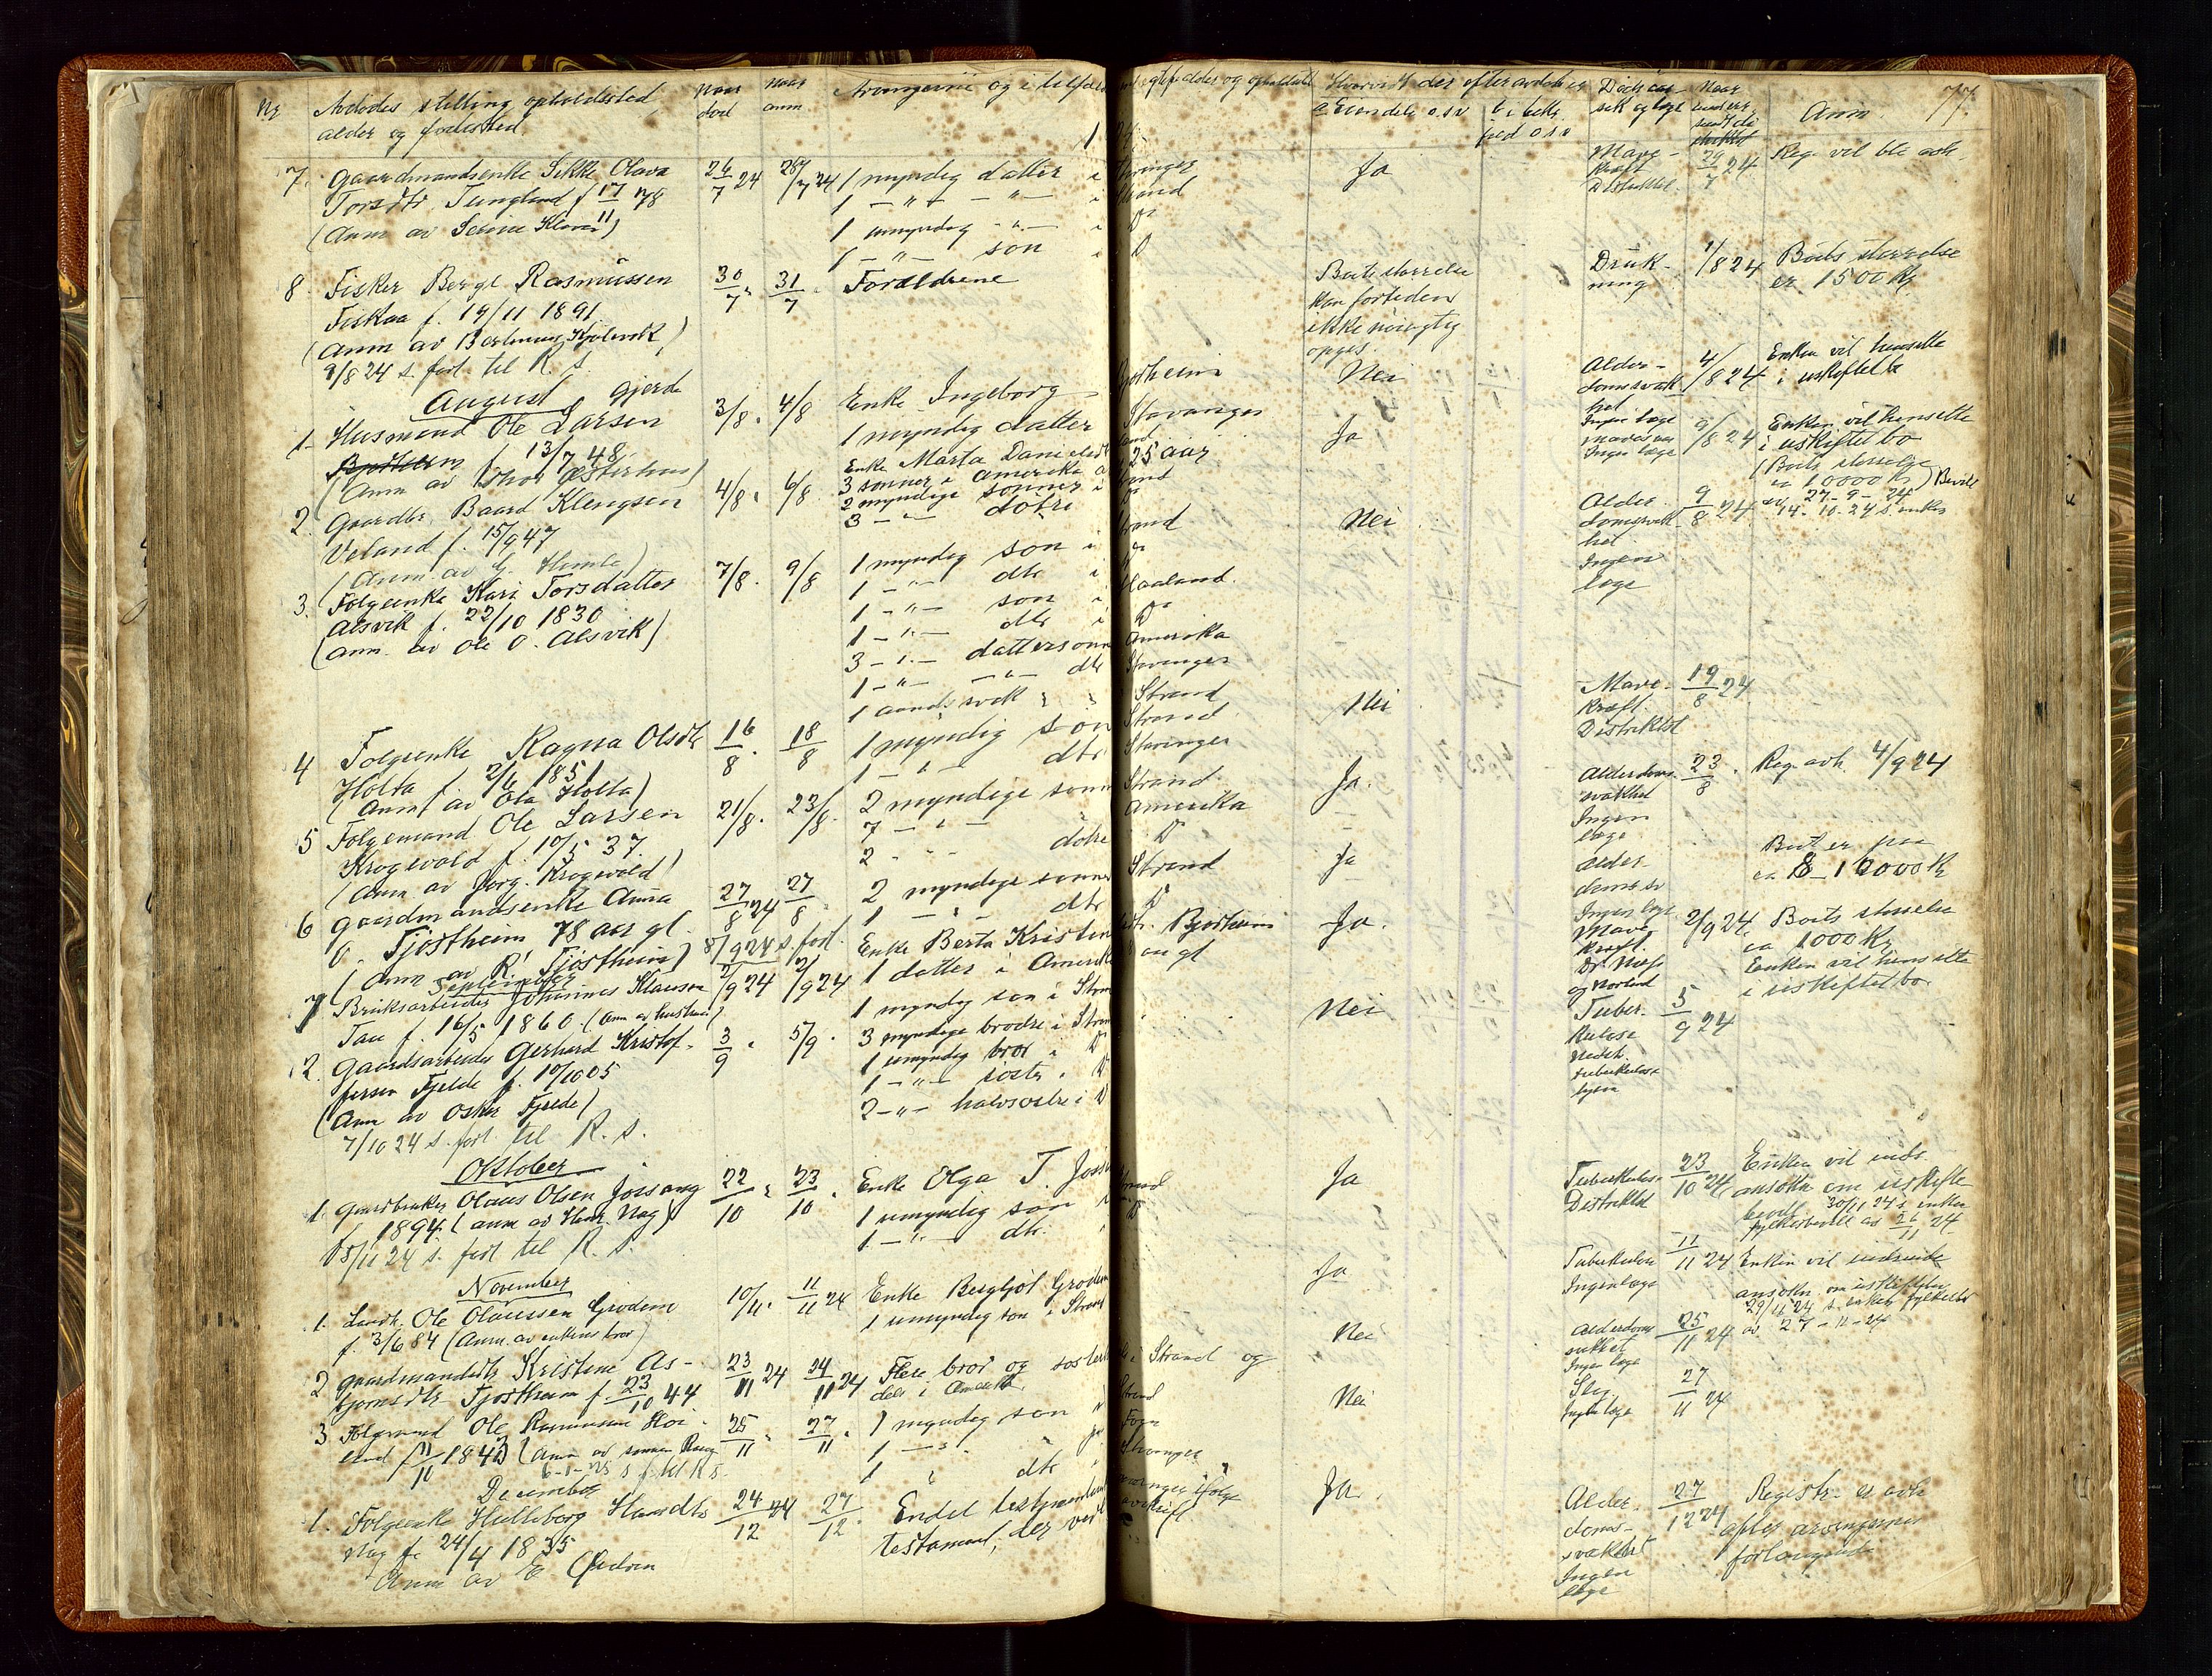 Nr Avdødes stilling, opholdssted, alder og fødested. Naar død Naar anm. Arvingerne og i tilfælde opholdssted Hvorvidt der efter avdøde er Dødsaarsak og læge Naar indsendt Anm. 77.
a Eiendele o.s.v.
1924
7. Gaardmandsenke Sikke Olava 26/7 24 28/7 24 1 myndig datter i Stavanger Ja Mave- 29/7 24 Reg. vil bli avh.
Torsdtr. Tungland f 17/11 78 1 - " - - " - i Strand kræft
(Anm av Serine Klover) 1 umyndig - " - i D° Distriktsl.
1 - " - søn i D
8. Fisker Bergt Rasmussen 30/7. 31/7. Forældrene Boets størrelse Druk- 1/8 24 Boets størrelse
Fiskaa f. 19/11 1891 kan fortiden ning er 1500 Kr
(Anm av Bertinius Kjølevik) ikke nøiagtig
9/8 24 s. fort. til R. S. opges.
August
1. Husmand Ole Larsen Gjerde 3/8. 4/8 Enke Ingeborg Bjørheim Nei Alder- 4/8 24 Enken vil hensitte
f 13/7 48 1 myndig datter Stavanger domssvakhet i uskiftet bo
(Anm av Thor Østerhus) Ingen læge
2. Gaardbr. Baard Klengsen 4/8. 6/8. Enke Marta Danielsdtr 25 aar Ja Ingen læge 9/8 24 Enken vil hensitte
Veland f. 15/9 47 3 sønner i Amerika i uskiftet bo
(Anm. av G. Humle) 2 myndige sønner i (Boets størrelse
3 - " - døtre D° ca 10000 Kr) Bevill.
av 27-9-24
14-10-24 s. enken
3. Følgeenke Kari Torsdatter 7/8. 9/8 1 myndig søn i Strand Nei Alder- 9/8 24
Alsvik f. 22/10 1830 1 - " - dtr i D° domssvakhet
(Anm. av Ole O. Alsvik) 1 - " - søn i Haaland. Ingen
1 - " - dtr i D° læge
3 - " - dattersønn Amerika
1 - " - - " - dtr Stavanger
1 aandssvak Strand
4 Følgeenke Ragna Olsdtr 16/8. 18/8 1 myndig søn Strand Nei Mave- 19/8 24
Holta f. 2/6 1851 1 - " - dtr Stavanger kræft.
(Anm av Ola Holta) Distriktsl
5 Følgemand Ole Larsen 21/8. 23/8. 2 myndige sønn Strand Ja. Alderdoms- 23/8. Reg. avh. 4/9 24
Krogevold f. 10/5 37. 7 - " - Amerika svakhet
(Anm av Jørg. Krogevold) 2 - " - døtre i D Ingen læge
6 Gaardmandsenke Anna 27/8 24 27/8. 2 myndige sønner Strand Ja Alder- Boet er paa
O. Tjøstheim, 78 aar gl. 1 - " - dtr D domssv. ca 8-12000 Kr
(Anm av R. Tjøstheim) 8/9 24 s. fort. Ingen læge
September
1 Bruksarbeider Johannes Klausen 2/9 24 2/9 24 Enke Berta Kristin Bjørheim Ja. Mave- 2/9 24 Boets størrelse
Tau f. 16/5 1860 (Anm av hustruen) 1 datter i Amerik kræft. ca 1000 Kr
1 myndig søn i Stran Dr. Næss Enken vil hensitte
i uskiftet bo.
2. Gaardsarbeider Gerhard Kristof- 3/9. 5/9. 3 myndige brødre i Stran Nei Tuber- 5/9 24
fersen Fjelde f. 10/10 05 1 umyndig bror i D kulose
(Anm av Oskar Fjelde) 1 - " - søster i D
7/10 24 s. fort. til R. S. 2 - " - halvsøstre i D tuberkuloselegen
Oktober
1. Gaardbruker Olaus Olsen Jøssang 22/10. 23/10. Enke Olga T. Jøss Strand Ja Tuberkulose 23/10 24 Enken vil inds.
f. 1894 (anm av Henr. Nag) 1 umyndig søn i D Distriktsl. ansøkn om uskiftebevill. 30/11 24 s. enken
15/11 24 s. fort til R. S. 1 - " - dtr. fylkesbevill av 26/11 24
November
1. Landh. Ole Olaussen Grødem 10/11. 11/11 24 Enke Bergljot Grødem Ja Tuberkulose 11/11 24 Enken vil indsende
f. 3/6 84 (Anm. av enkens bror) 1 umyndig søn i Strand Ingen læge ansøkn. om uskiftebev
29/11 24 s. enken fylkesb.
av 27-11-24
2 Gaardmandsdtr Kristine As- 23/11 24 24/11 24 Flere brør og søstre i Strand og Nei Alderdoms- 25/11 24
bjørnsdtr Tjøstheim f. 23/10 44 dels i Amerika svakhet Ingen læge
3 Følgemand Ole Rasmussen Høi- 25/11. 27/11. 1 myndig søn Strand Nei Slag 27/11 24
land f 11/10 1843 (Anm av sønnen Rasm 1 - " - Fogn Ingen læge
6-1-25 s f. til R S. 1 " dtr Stavanger
December
1. Følgeenke Helleborg Haavdtr 24/12 24 27/12. Endel testament Stavanger ifølge Ja. Alder- 27/12 24 Registr. er avh
Nag f. 24/4 1835 testament, der ved avskrift doms- efter arvingernes
Anm av E Pedersen svakhet forlangende
Ingen læge